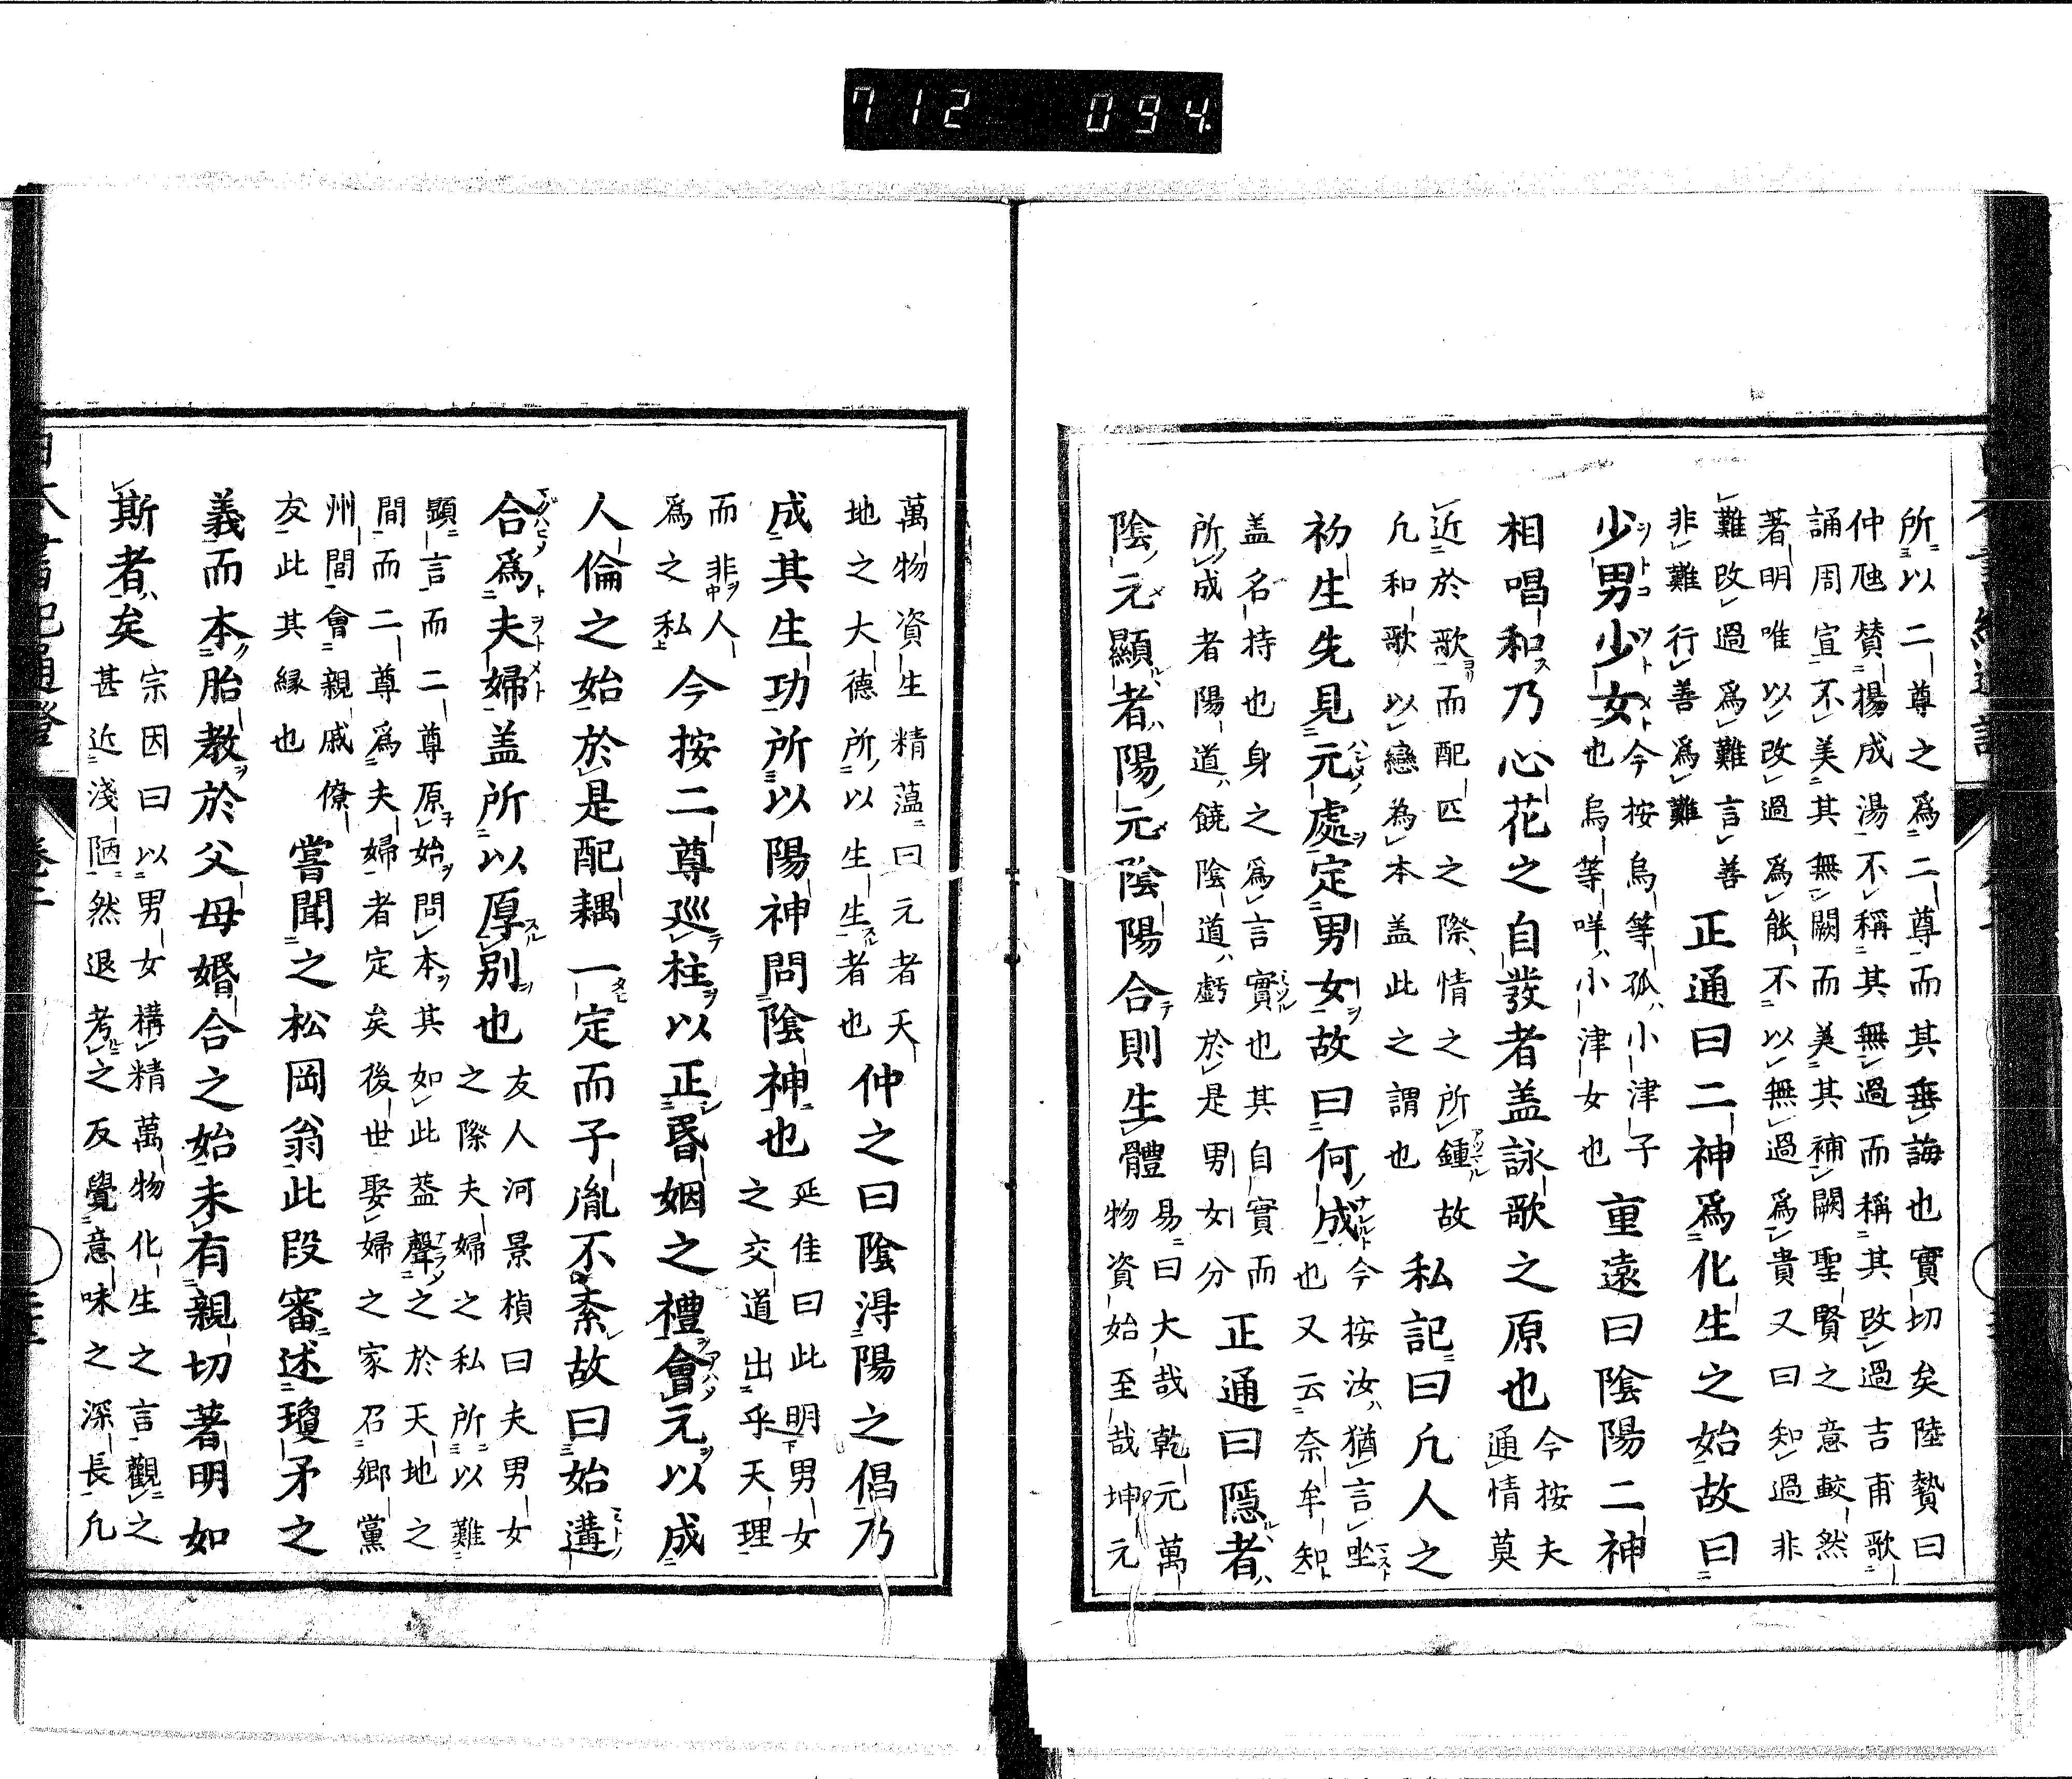 712 094
所以二尊之爲二尊而其垂誨也實切矣陸贄曰
仲虺賛揚成湯不稱其無過而稱其改過吉甫歌
誦周宣不美其無闕而美其補闕聖賢之意較然
著明唯以改過爲能不以無過爲貴又曰知過非
難改過爲難言善
非難行善爲難
正通曰二神爲化生之始故曰
少男少女
今按烏等孤小津子
也烏等咩小津女也
重遠曰陰陽二神
相唱和乃心花之自發者盖詠歌之原也
今按夫
通情莫
近於歌而配匹之際情之所鍾故
凢和歌以戀為本盖此之謂也
私記曰凢人之
初生先見元處定男女故曰何成
今按汝猶言㘴
也又云奈牟知
盖名持也身之爲言實也其自實而
所成者陽道饒陰道虧於是男女分
正通曰隱者
陰元顯者陽元陰陽合則生體
易曰大哉乾元萬
物資始至哉坤元
萬物資生精蕰曰元者天
地之大德所以生生者也
仲之曰陰淂陽之倡乃
成其生功所以陽神問陰神也
延佳曰此明男女
之交道出乎天理
而非人
爲之私
今按二尊巡柱以正昏姻之禮會元以成
人倫之始於是配耦一定而子胤不紊故曰始遘
合爲夫婦盖所以厚別也
友人河景楨曰夫男女
之際夫婦之私所以難
顯言而二尊原始問本其如此葢聲之於天地之
間而二尊爲夫婦者定矣後世娶婦之家召鄉黨
州閭會親戚僚
友此其縁也
嘗聞之松岡翁此段審述瓊矛之
義而本胎教於父母婚合之始未有親切著明如
斯者矣
宗因曰以男女構精萬物化生之言觀之
甚近淺陋然退考之反覺意味之深長凢